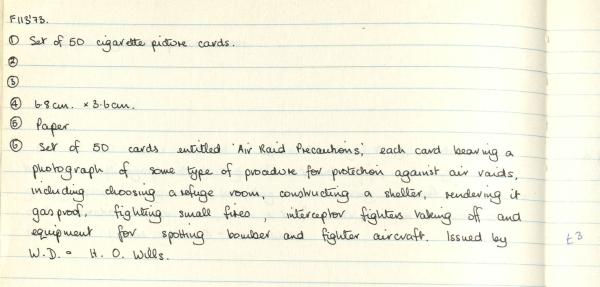 F113'73.
① Set of 50 cigarette picture cards.
②
③
④ 6.8cm. x 3.6cm.
⑤ Paper
⑥ Set of 50 cards entitled 'Air Raid Precautions,' each card bearing a
photograph of some type of procedure for protection against air raids,
including choosing a refuge room, constructing a shelter, rendering it
gasproof, fighting small fires, interceptor fighters taking off and
equipment for spotting bomber and fighter aircraft. Issued by
W.D. & H.O. Wills.
£3